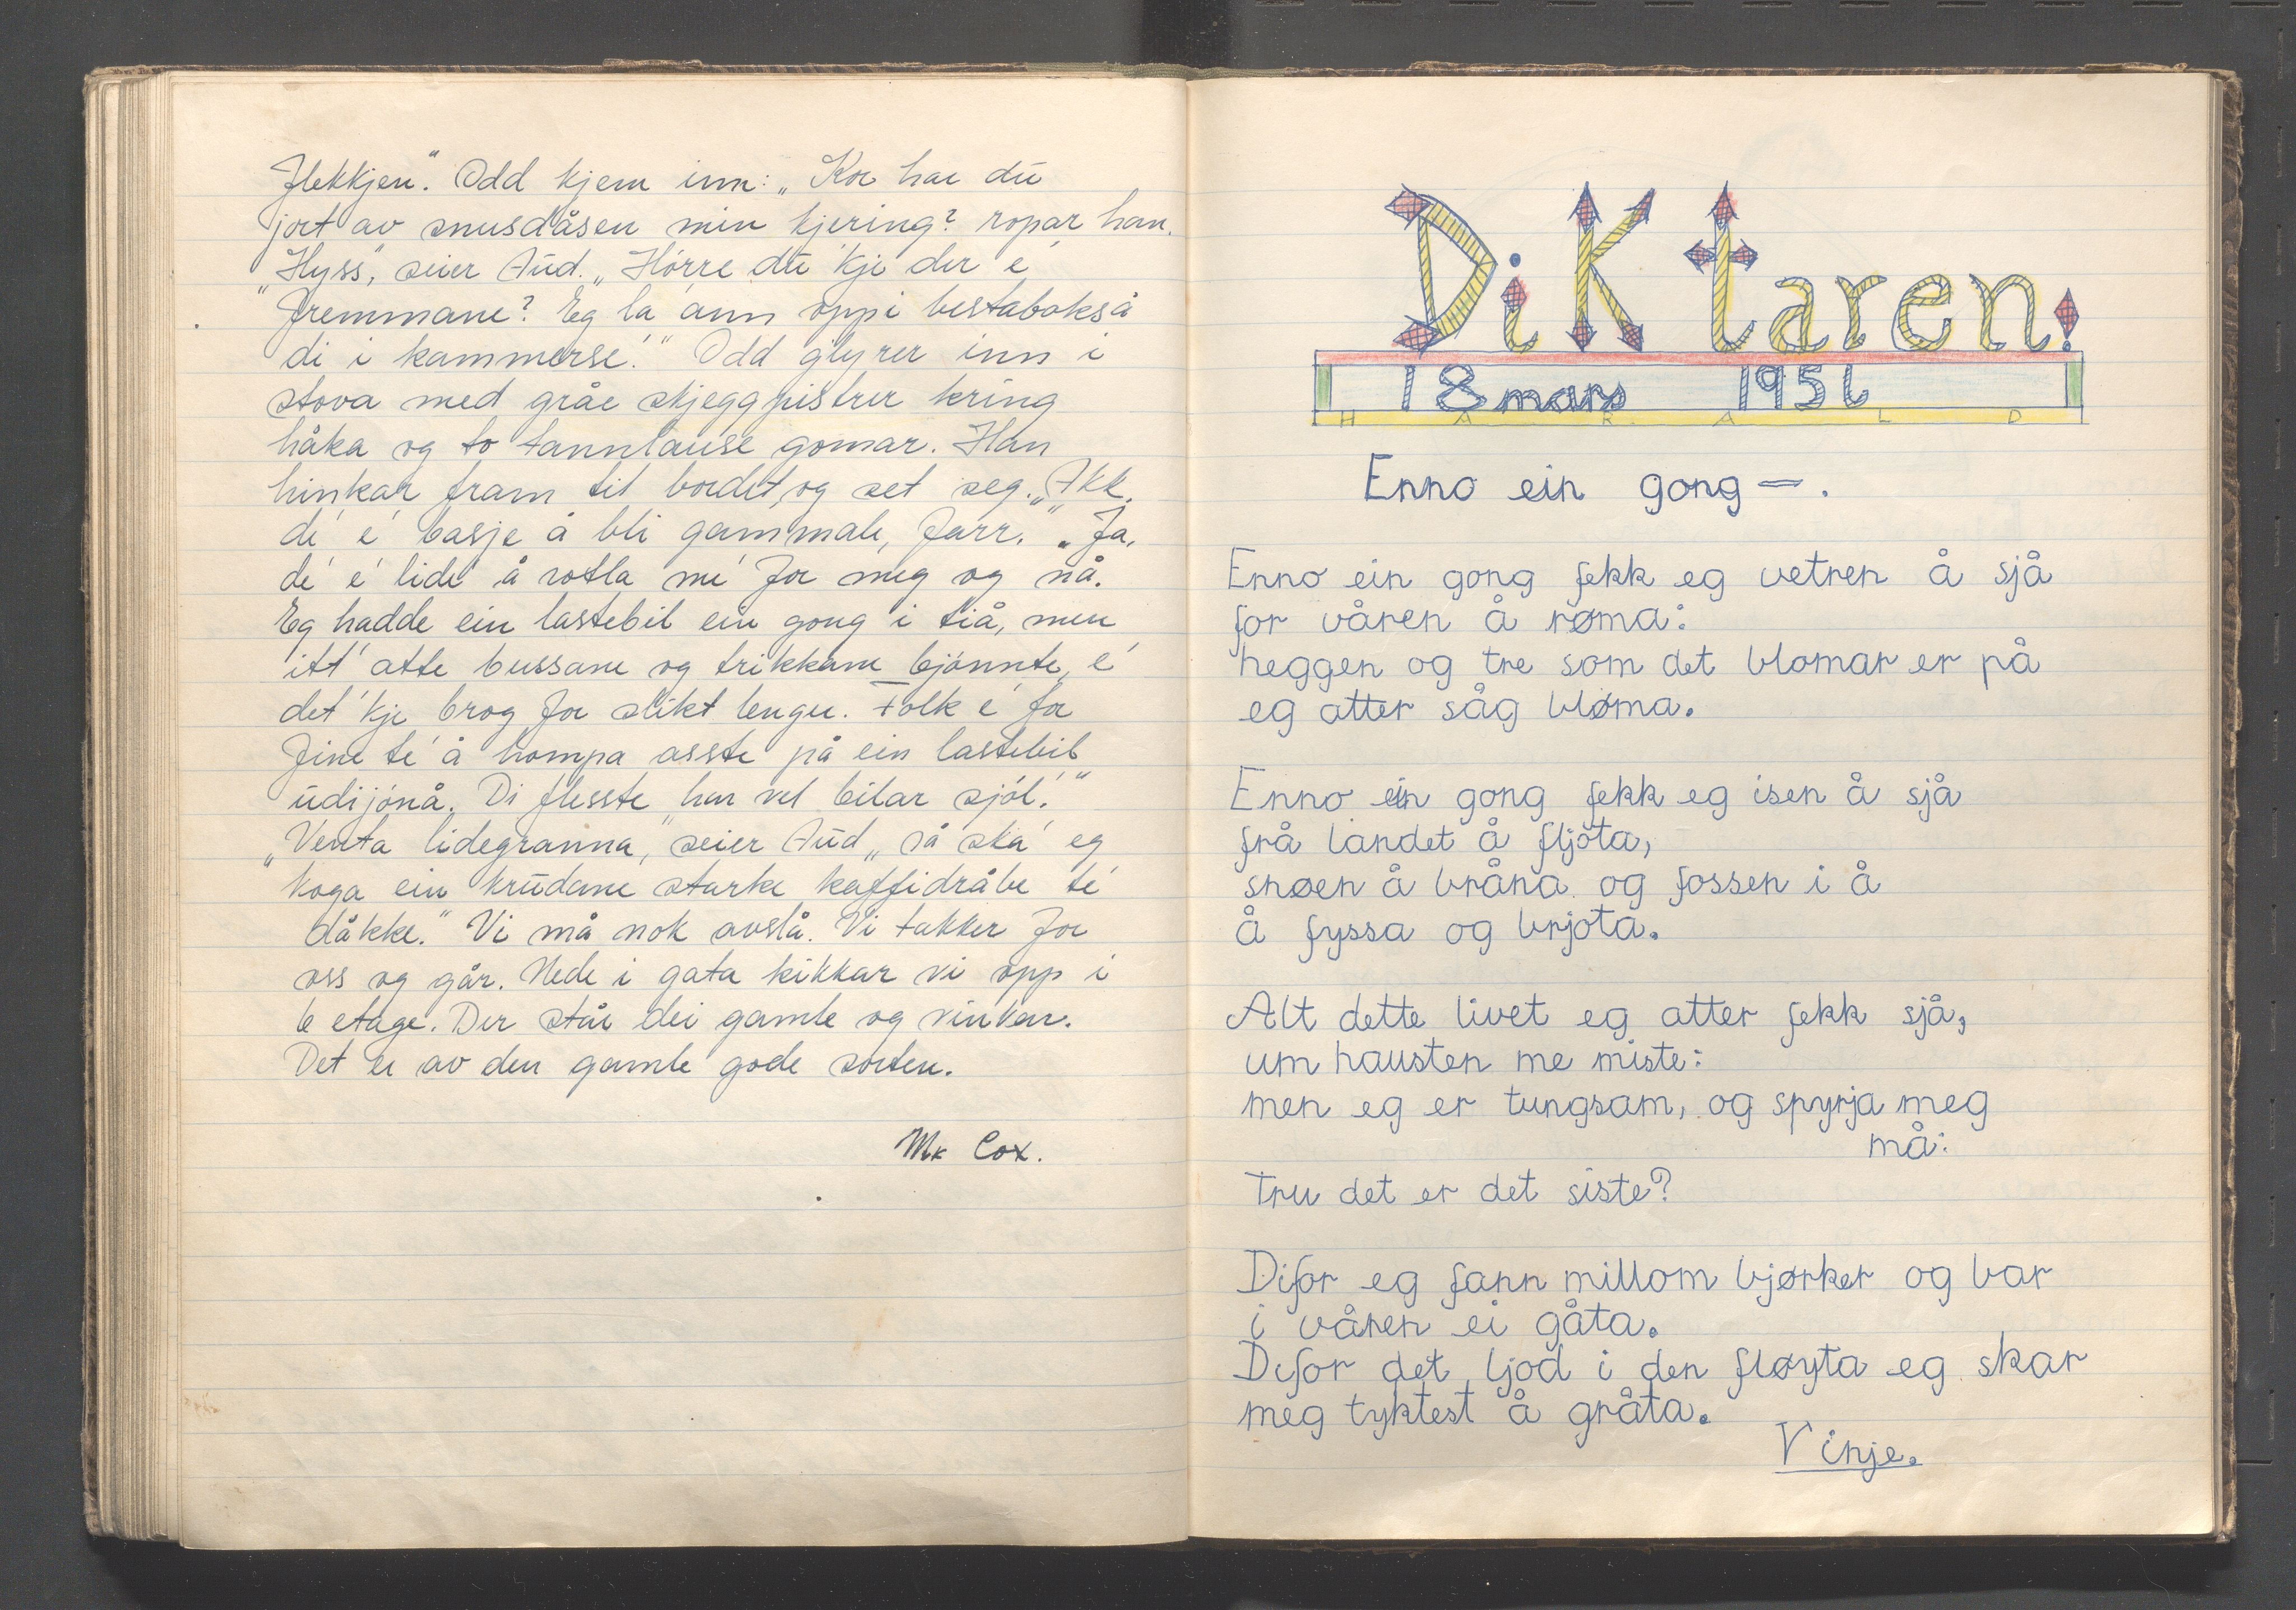 Flekkjen". Odd kjem inn: „Kor har du
jort av snusdåsen min kjering? ropar han.
„Hyss", seier Aud. „Hörre du 'kje der é
fremmane? Eg la ånn oppi bestabokså
di i kammerse!" Odd glyrer inn i
stova med gråe skjeggpistrer kring
håka og to tannlause gomar. Han
hinkar fram til bordet, og set seg. „Akk,
de' é basje å bli gammale, Farr. „Ja,
de' é lide' å rotla me' for meg og nå.
Eg hadde ein lastebil ein gong i tiå, men
itt' atte bussane og trikkane bjönnte, é
det 'kje brog for slikt lenger. Folk é for
fine te' å hompa asste på ein lastebil
udijónå. Di flesste har vel bilar sjól."
„Venta lidegranna," seier Aud „så ska' eg
koga ein krudane starke kaffidråbe te'
dåkke." Vi må nok avslå. Vi takker for
oss og går. Nede i gata kikkar vi opp i
6 etage. Der står dei gamle og vinkar.
Det er av den gamle gode sorten.
Mk Cox.
DiKtaren!
18 mars 1956
H A R A L D
Enno ein gong —.
Enno ein gong fekk eg vetren å sjå
for våren å røma:
heggen og tre som det blomar er på
eg atter såg bløma.
Enno ein gong fekk eg isen å sjå
frå landet å fljota,
snøen å bråna og fossen i å
å fyssa og brjota.
Alt dette livet eg atter fekk sjå,
um hausten me miste:
men eg er tungsam, og spyrja meg
må:
tru det er det siste?
Difor eg fann millom bjørker og bar
i våren ei gåta.
Difor det ljod i den fløyta eg skar
meg tyktest å gråta.
Vinje.